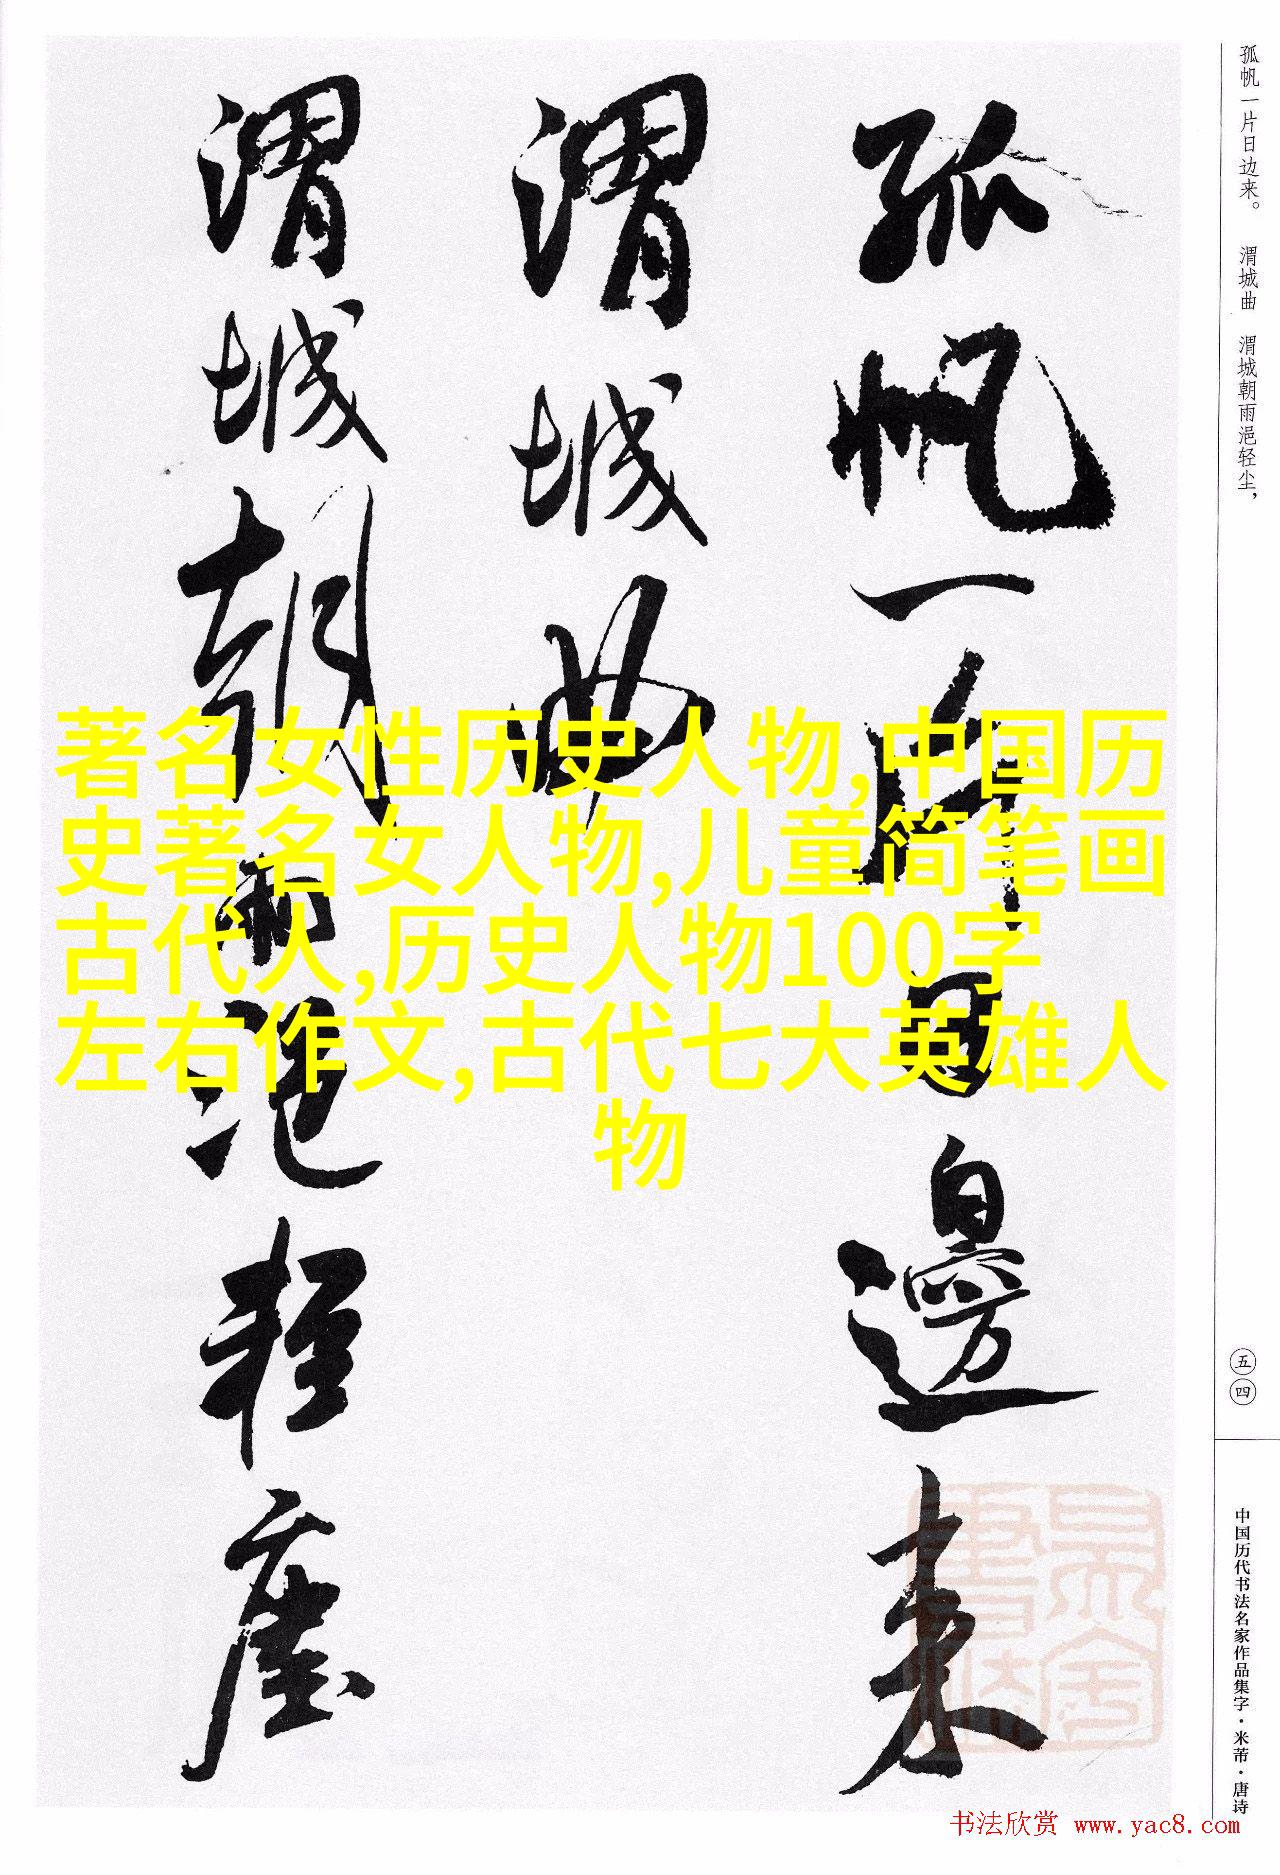 孤帆一片日边来。 渭城曲 渭城朝雨浥轻尘，
孤帆一片日邊来
渭城曲
渭城朝雨浥轻塵
著名女性历史人物,中国历
史著名女人物,儿童简笔画
古代人,历史人物100字
左右作文,古代七大英雄人
物
五四
中国历代书法名家作品集字·米芾·唐诗
书法欣赏 www.yac8.com